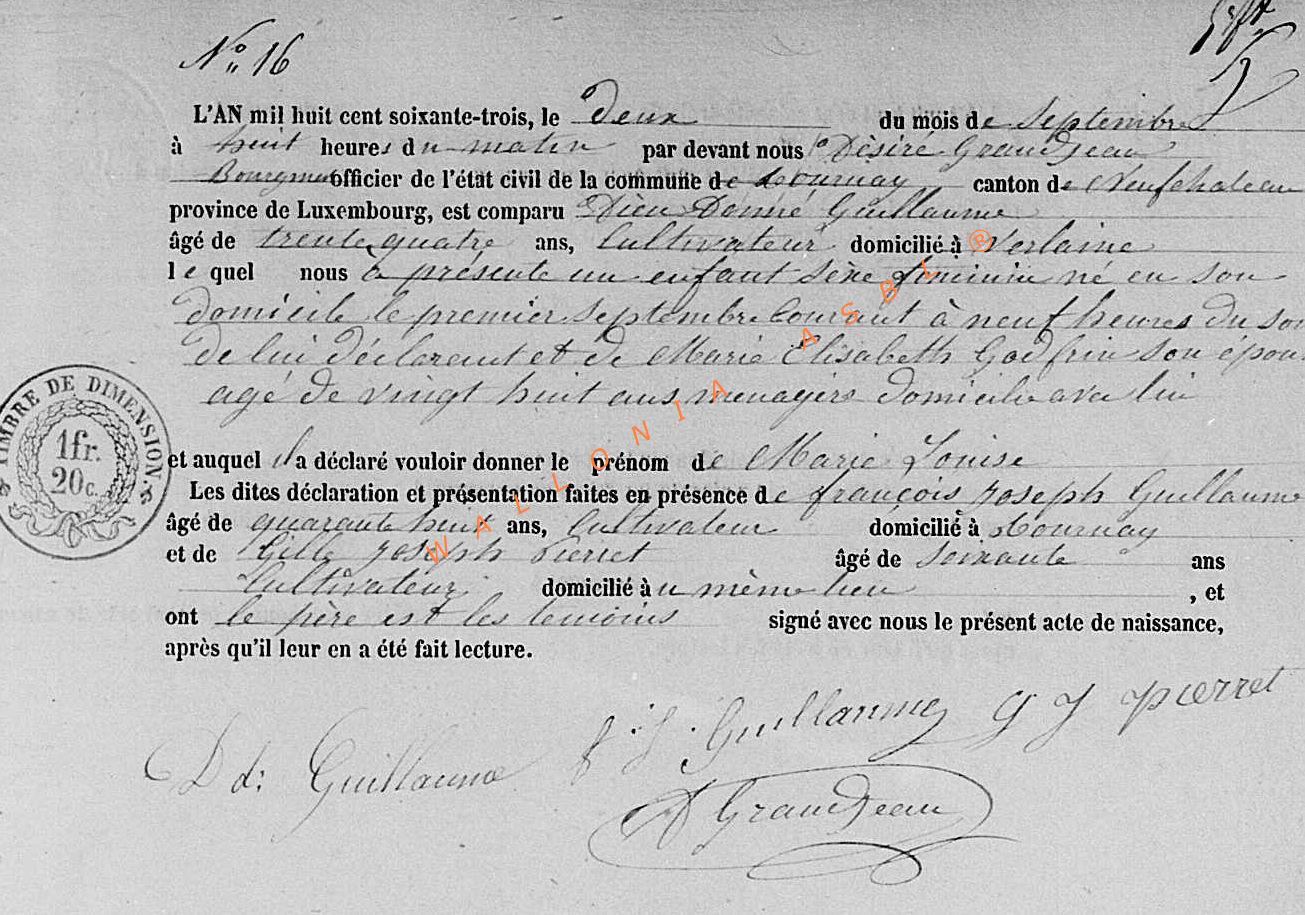 No 16
L'AN mil huit cent soixante-trois, le Deux du mois de Septembre
à huit heures du matin par devant nous Désiré Grandjean
Bourgmes officier de l'état civil de la commune de tournay canton de Neufchateau
province de Luxembourg, est comparu Dieu Donné Guillaume
âgé de trente quatre ans, Cultivateur domicilié à Verlaine
le quel nous à présente un enfant sèxe féminin né en son
domicile le premier Septembre Courant à neuf heures du soi
de lui déclarant et de Marie Elisabeth Godfrin son épou
agé de vingt huit ans menagère domicilie avec lui
TIMBRE DE DIMENSION.
1fr.
20c.
et auquel il a déclaré vouloir donner le prénom de Marie Louise
Les dites déclaration et présentation faites en présence de françois joseph Guillaume
âgé de quarante huit ans, Cultivateur domicilié à tournay
et de Gille joseph Pierret âgé de soixante ans
Cultivateur domicilié à u même lieu , et
ont le père est les temoins signé avec nous le présent acte de naissance,
après qu'il leur en a été fait lecture.
D d: Guillaume f j Guillaume g j pierret
D Grandjean
WALLONIA ASBL ®